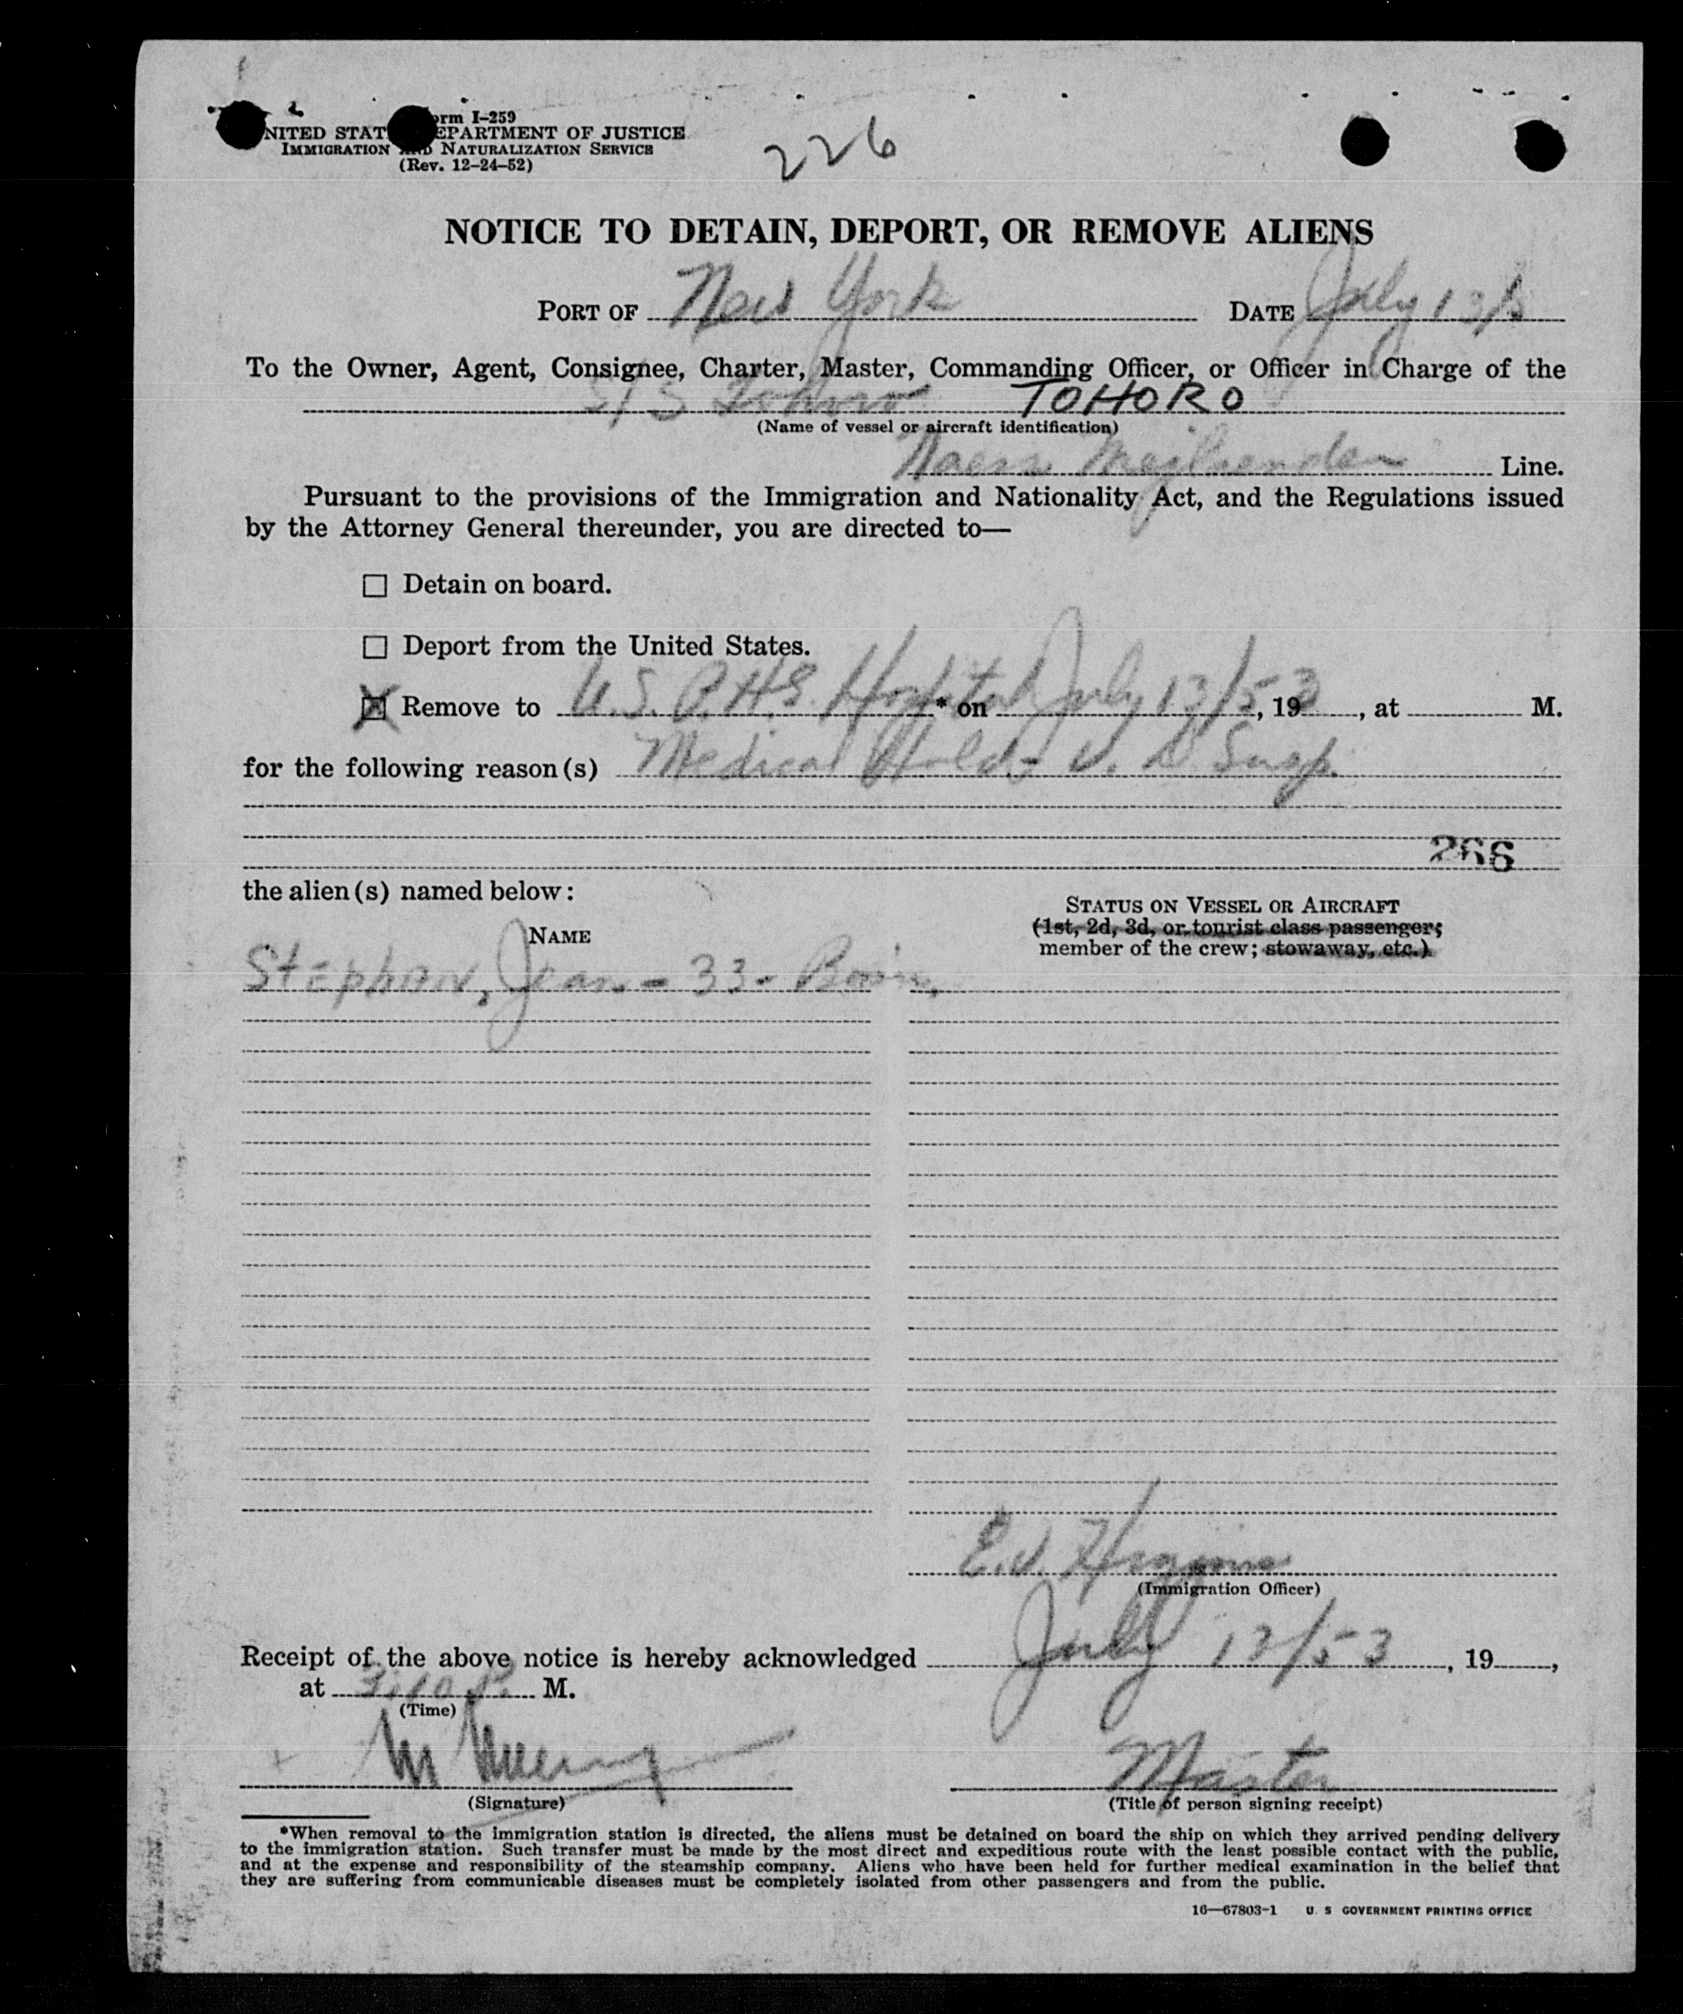 Form I-259
UNITED STATES DEPARTMENT OF JUSTICE
IMMIGRATION AND NATURALIZATION SERVICE
(Rev. 12-24-52)
226
NOTICE TO DETAIN, DEPORT, OR REMOVE ALIENS
PORT OF New York DATE July 13/5
To the Owner, Agent, Consignee, Charter, Master, Commanding Officer, or Officer in Charge of the
S/S Tohoro TOHORO
(Name of vessel or aircraft identification)
Naess Line.
Pursuant to the provisions of the Immigration and Nationality Act, and the Regulations issued
by the Attorney General thereunder, you are directed to—
Detain on board.
Deport from the United States.
Remove to U.S. P.H.S. Hospital* on July 13/53, 19, at M.
for the following reason(s) Medical Hold - V. D. Susp.
266
the alien(s) named below:
STATUS ON VESSEL OR AIRCRAFT
(1st, 2d, 3d, or tourist class passenger;
NAME
member of the crew; stowaway, etc.)
Stephan, Jean - 33 -
E.J. Higgins
(Immigration Officer)
Receipt of the above notice is hereby acknowledged July 13/53, 19,
at 3:10 P. M.
(Time)
Master
(Signature) (Title of person signing receipt)
*When removal to the immigration station is directed, the aliens must be detained on board the ship on which they arrived pending delivery
to the immigration station. Such transfer must be made by the most direct and expeditious route with the least possible contact with the public,
and at the expense and responsibility of the steamship company. Aliens who have been held for further medical examination in the belief that
they are suffering from communicable diseases must be completely isolated from other passengers and from the public.
16—67803-1 U. S GOVERNMENT PRINTING OFFICE